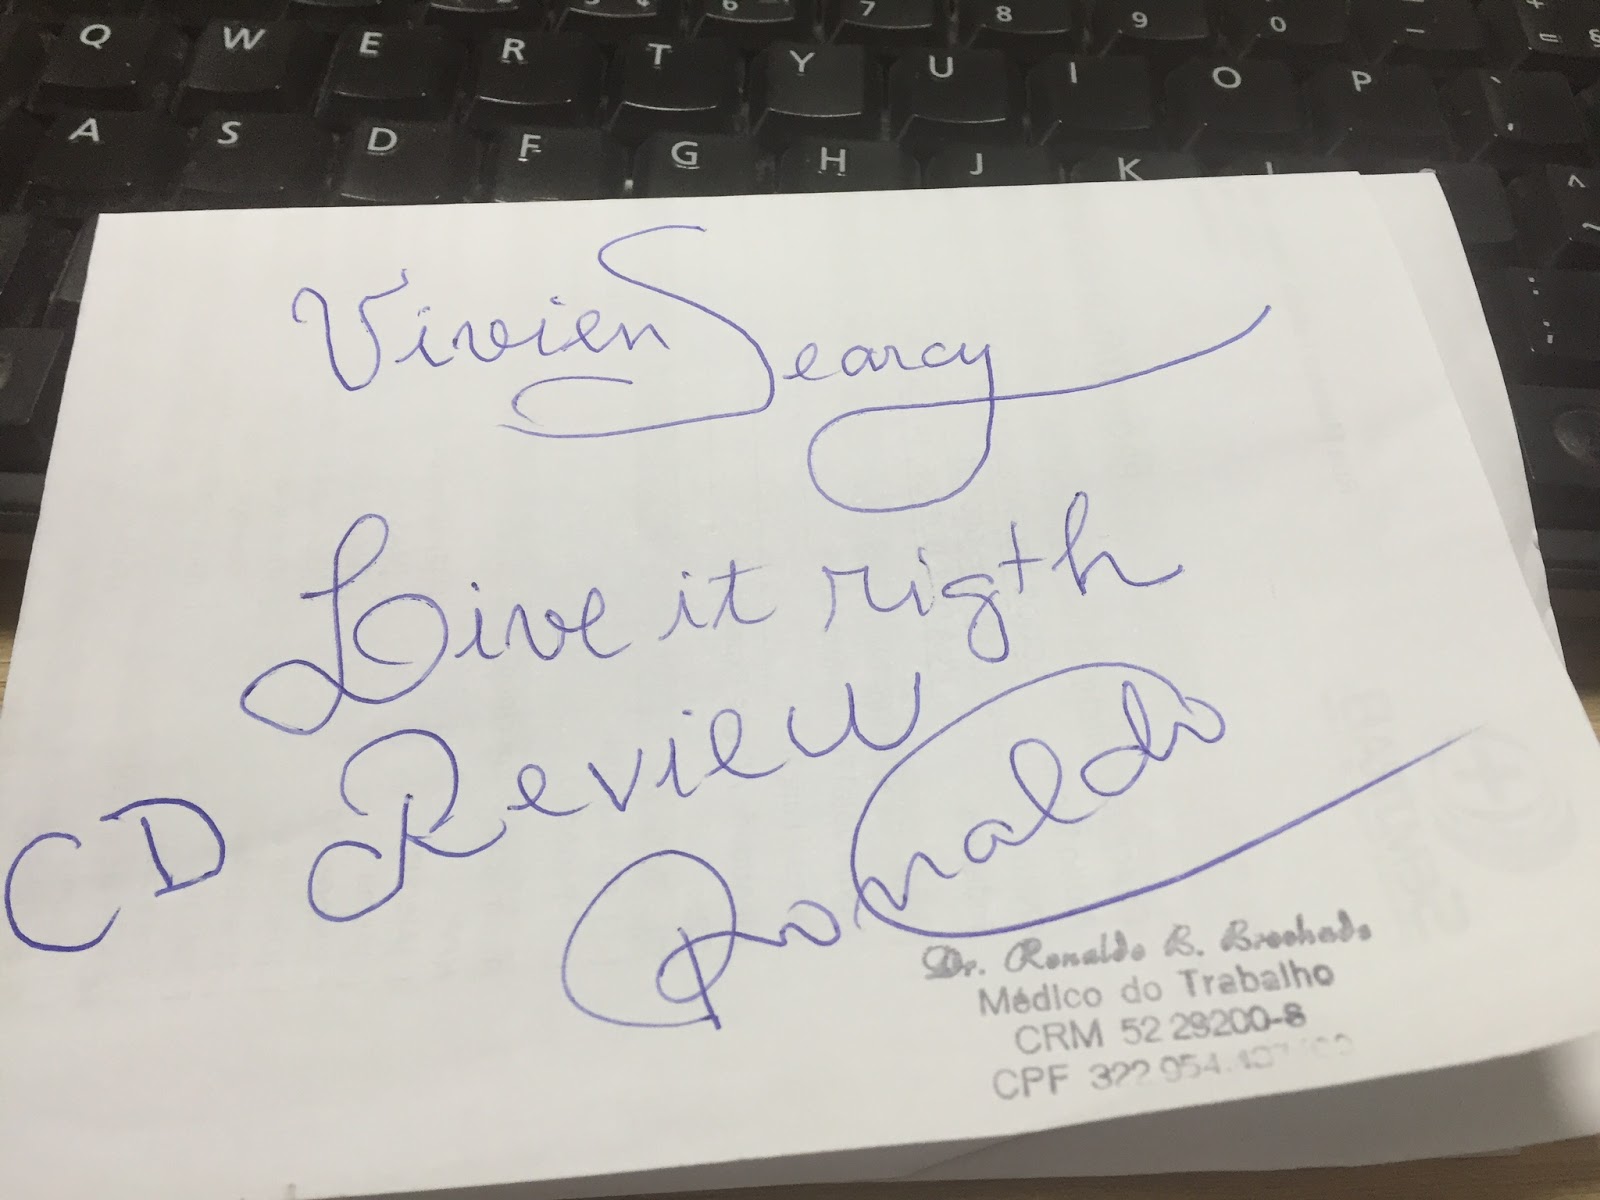 Q W E R T Y U I O P
A S D F G H J K
Vivien Searcy
Live it rigth
CD Review
Ronaldo
Dr. Ronaldo B. Brochado
Médico do Trabalho
CRM 52 29200-8
CPF 322 954.